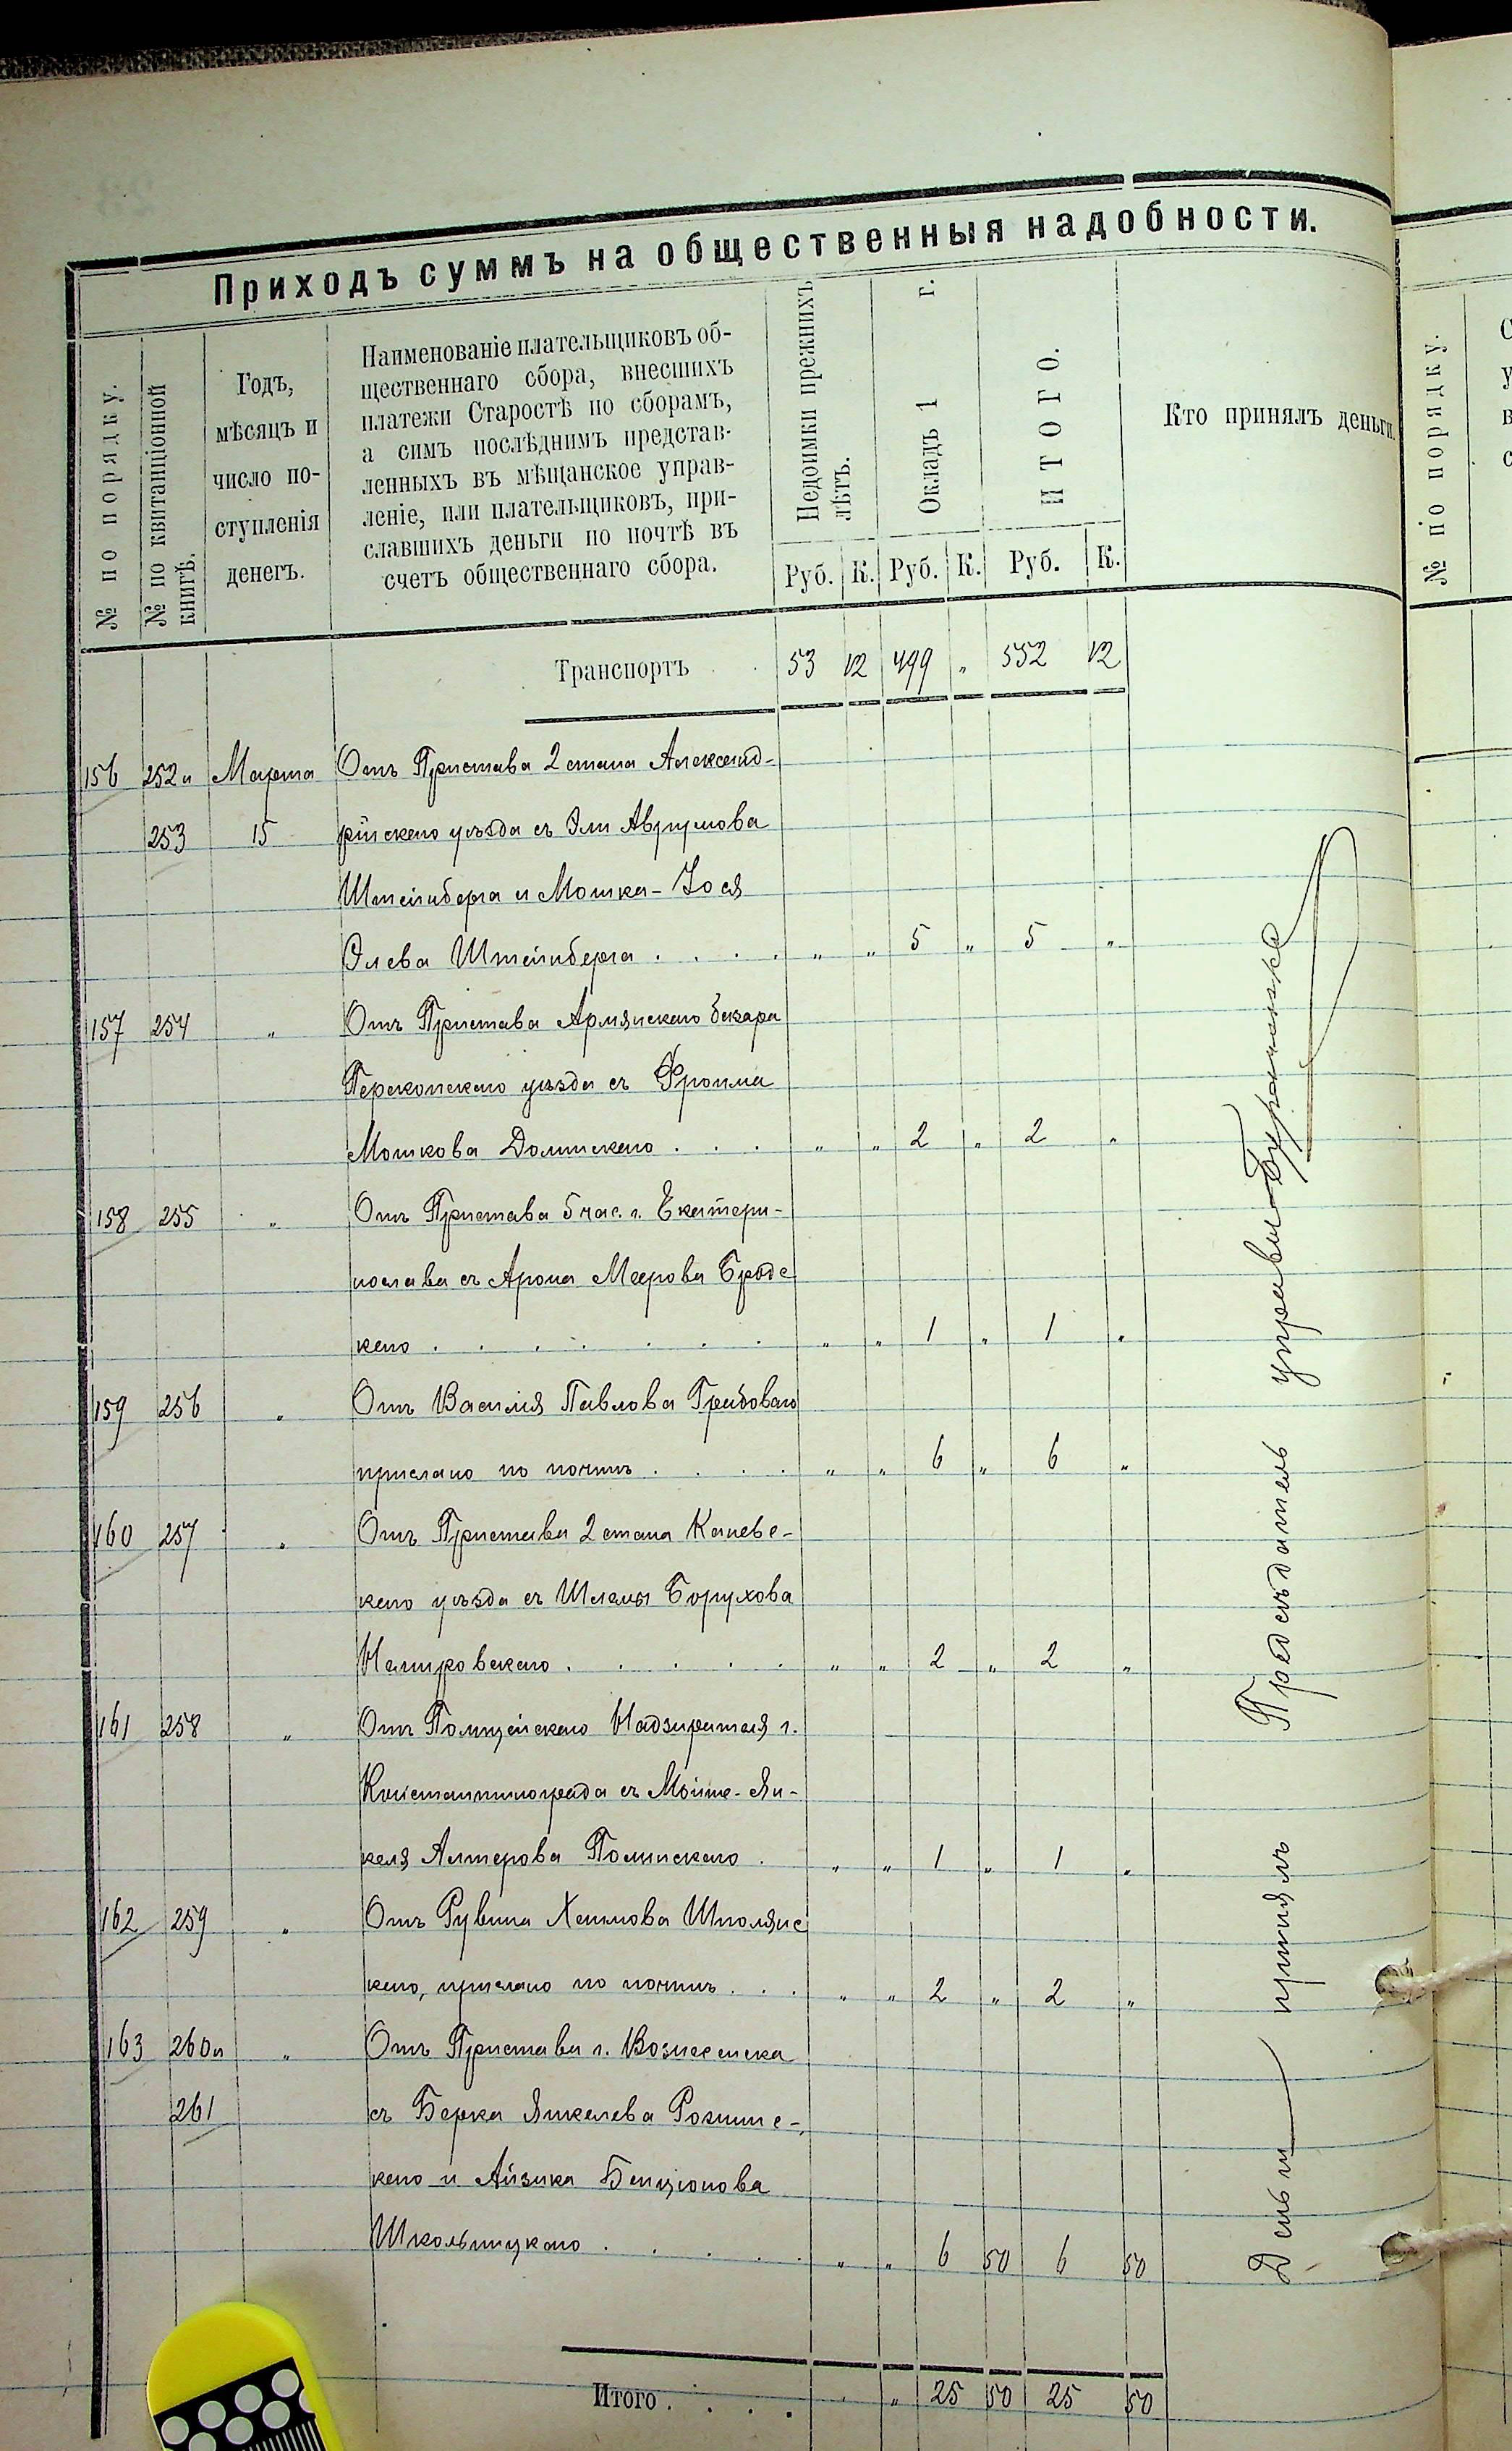 Приходъ суммъ на общественныя надобности.
№ по порядку.
№ по квитанціонной
книгѣ.
Годъ,
мѣсяцъ и
число по-
ступленія
денегъ.
Наименованіе плательщиковъ об-
щественнаго сбора, внесшихъ
платежи Старостѣ по сборамъ,
а симъ послѣднимъ представ-
ленныхъ въ мѣщанское управ-
леніе, или плательщиковъ, при-
славшихъ деньги по почтѣ въ
счетъ общественнаго сбора.
Недоимки прежнихъ
лѣтъ.
Окладъ 1 г.
ИТОГО.
Кто принялъ деньги.
Руб. К. Руб. К. Руб. К.
Транспортъ 53 12 499 „ 552 12
156 252 и Марта Отъ Пристава 2 стана Александ-
253 15 рійскаго уѣзда съ Эли Аврумова
Штейнберга и Мошка-Іося
Элева Штейнберга . . . . „ „ 5 „ 5 „
157 254 „ Отъ Пристава Армянскаго базара
Перекопскаго уѣзда съ Фроима
Мошкова Долинскаго . . . „ „ 2 „ 2 „
158 255 „ Отъ Пристава 5 час. г. Екатери-
нослава съ Арона Меерова Бродс
каго . . . . . . . „ „ 1 „ 1 „
159 256 „ Отъ Василія Павлова Грабоваго
прислано по почтѣ . . . . „ „ 6 „ 6 „
160 257 „ Отъ Пристава 2 стана Каневс-
каго уѣзда съ Шлемы Борухова
. . . . . „ „ 2 „ 2 „
161 258 „ Отъ Полицейскаго Надзирателя г.
Константинограда съ Мойше-Ян-
келя Алтерова Полинскаго . „ „ 1 „ 1 „
162 259 „ Отъ Рувина Хаимова Шполянс
каго, прислано по почтѣ . . . „ „ 2 „ 2 „
163 260 и „ Отъ Пристава г. Вознесенска
261 съ Берка Янкелева
каго и Айзика Бенціонова
Школьницкаго . . . . . „ „ 6 50 6 50
Итого . . . . „ „ 25 50 25 50
Деньги принялъ Предсѣдатель управы
№ по порядку.